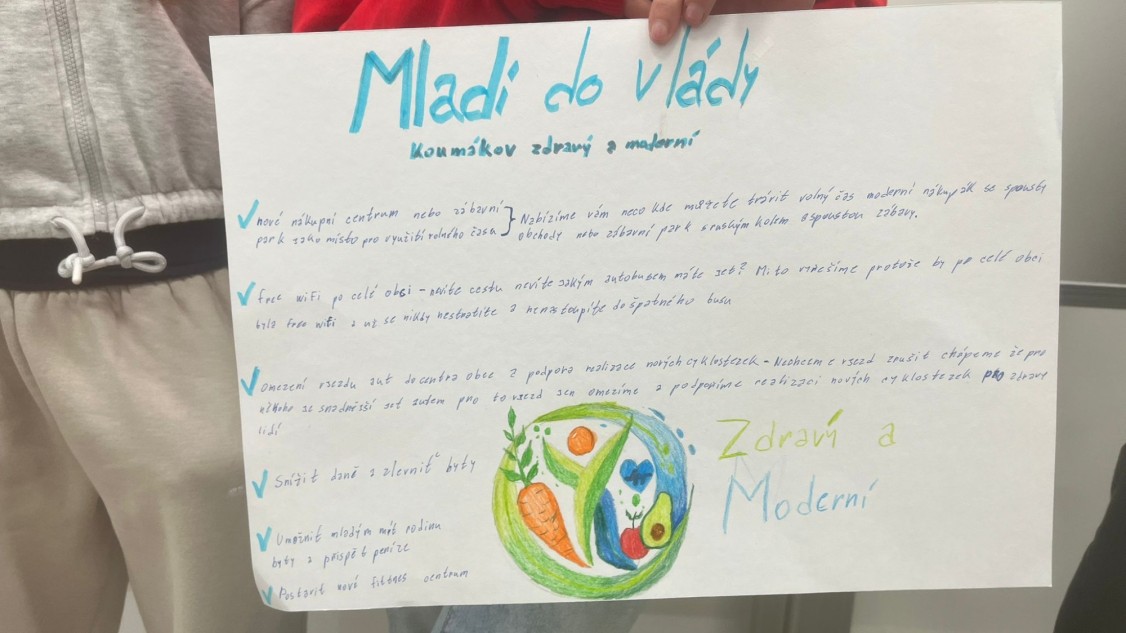 Mladí do vlády
Koumákov zdravý a moderní
nové nákupní centrum nebo zábavní
park jako místo pro využití volného času
Nabízíme vám neco kde můžete trávit volný čas moderní nákupák se spousty
obchody nebo zábavní park s ruským kolem a spoustou zábavy.
free wifi po celé obci - nevíte cestu nevíte jakým autobusem máte jet? Mi to vyřešíme protože by po celé obci
byla free wifi a už se nikdy nestratíte a nenastoupíte do špatného busu
omezení vjezdu aut do centra obce a podpora realizace nových cyklostezek - Nechceme vjezd zrušit chápeme že pro
někoho je snadnější jet autem pro to vjezd jen omezíme a podpoříme realizaci nových cyklostezek pro zdravý
lidi
Snížit daně a zlevnit byty
Umožnit mladým mít rodinu
byty a přispět peníze
Postavit nové fitness centrum
Zdravý a
Moderní